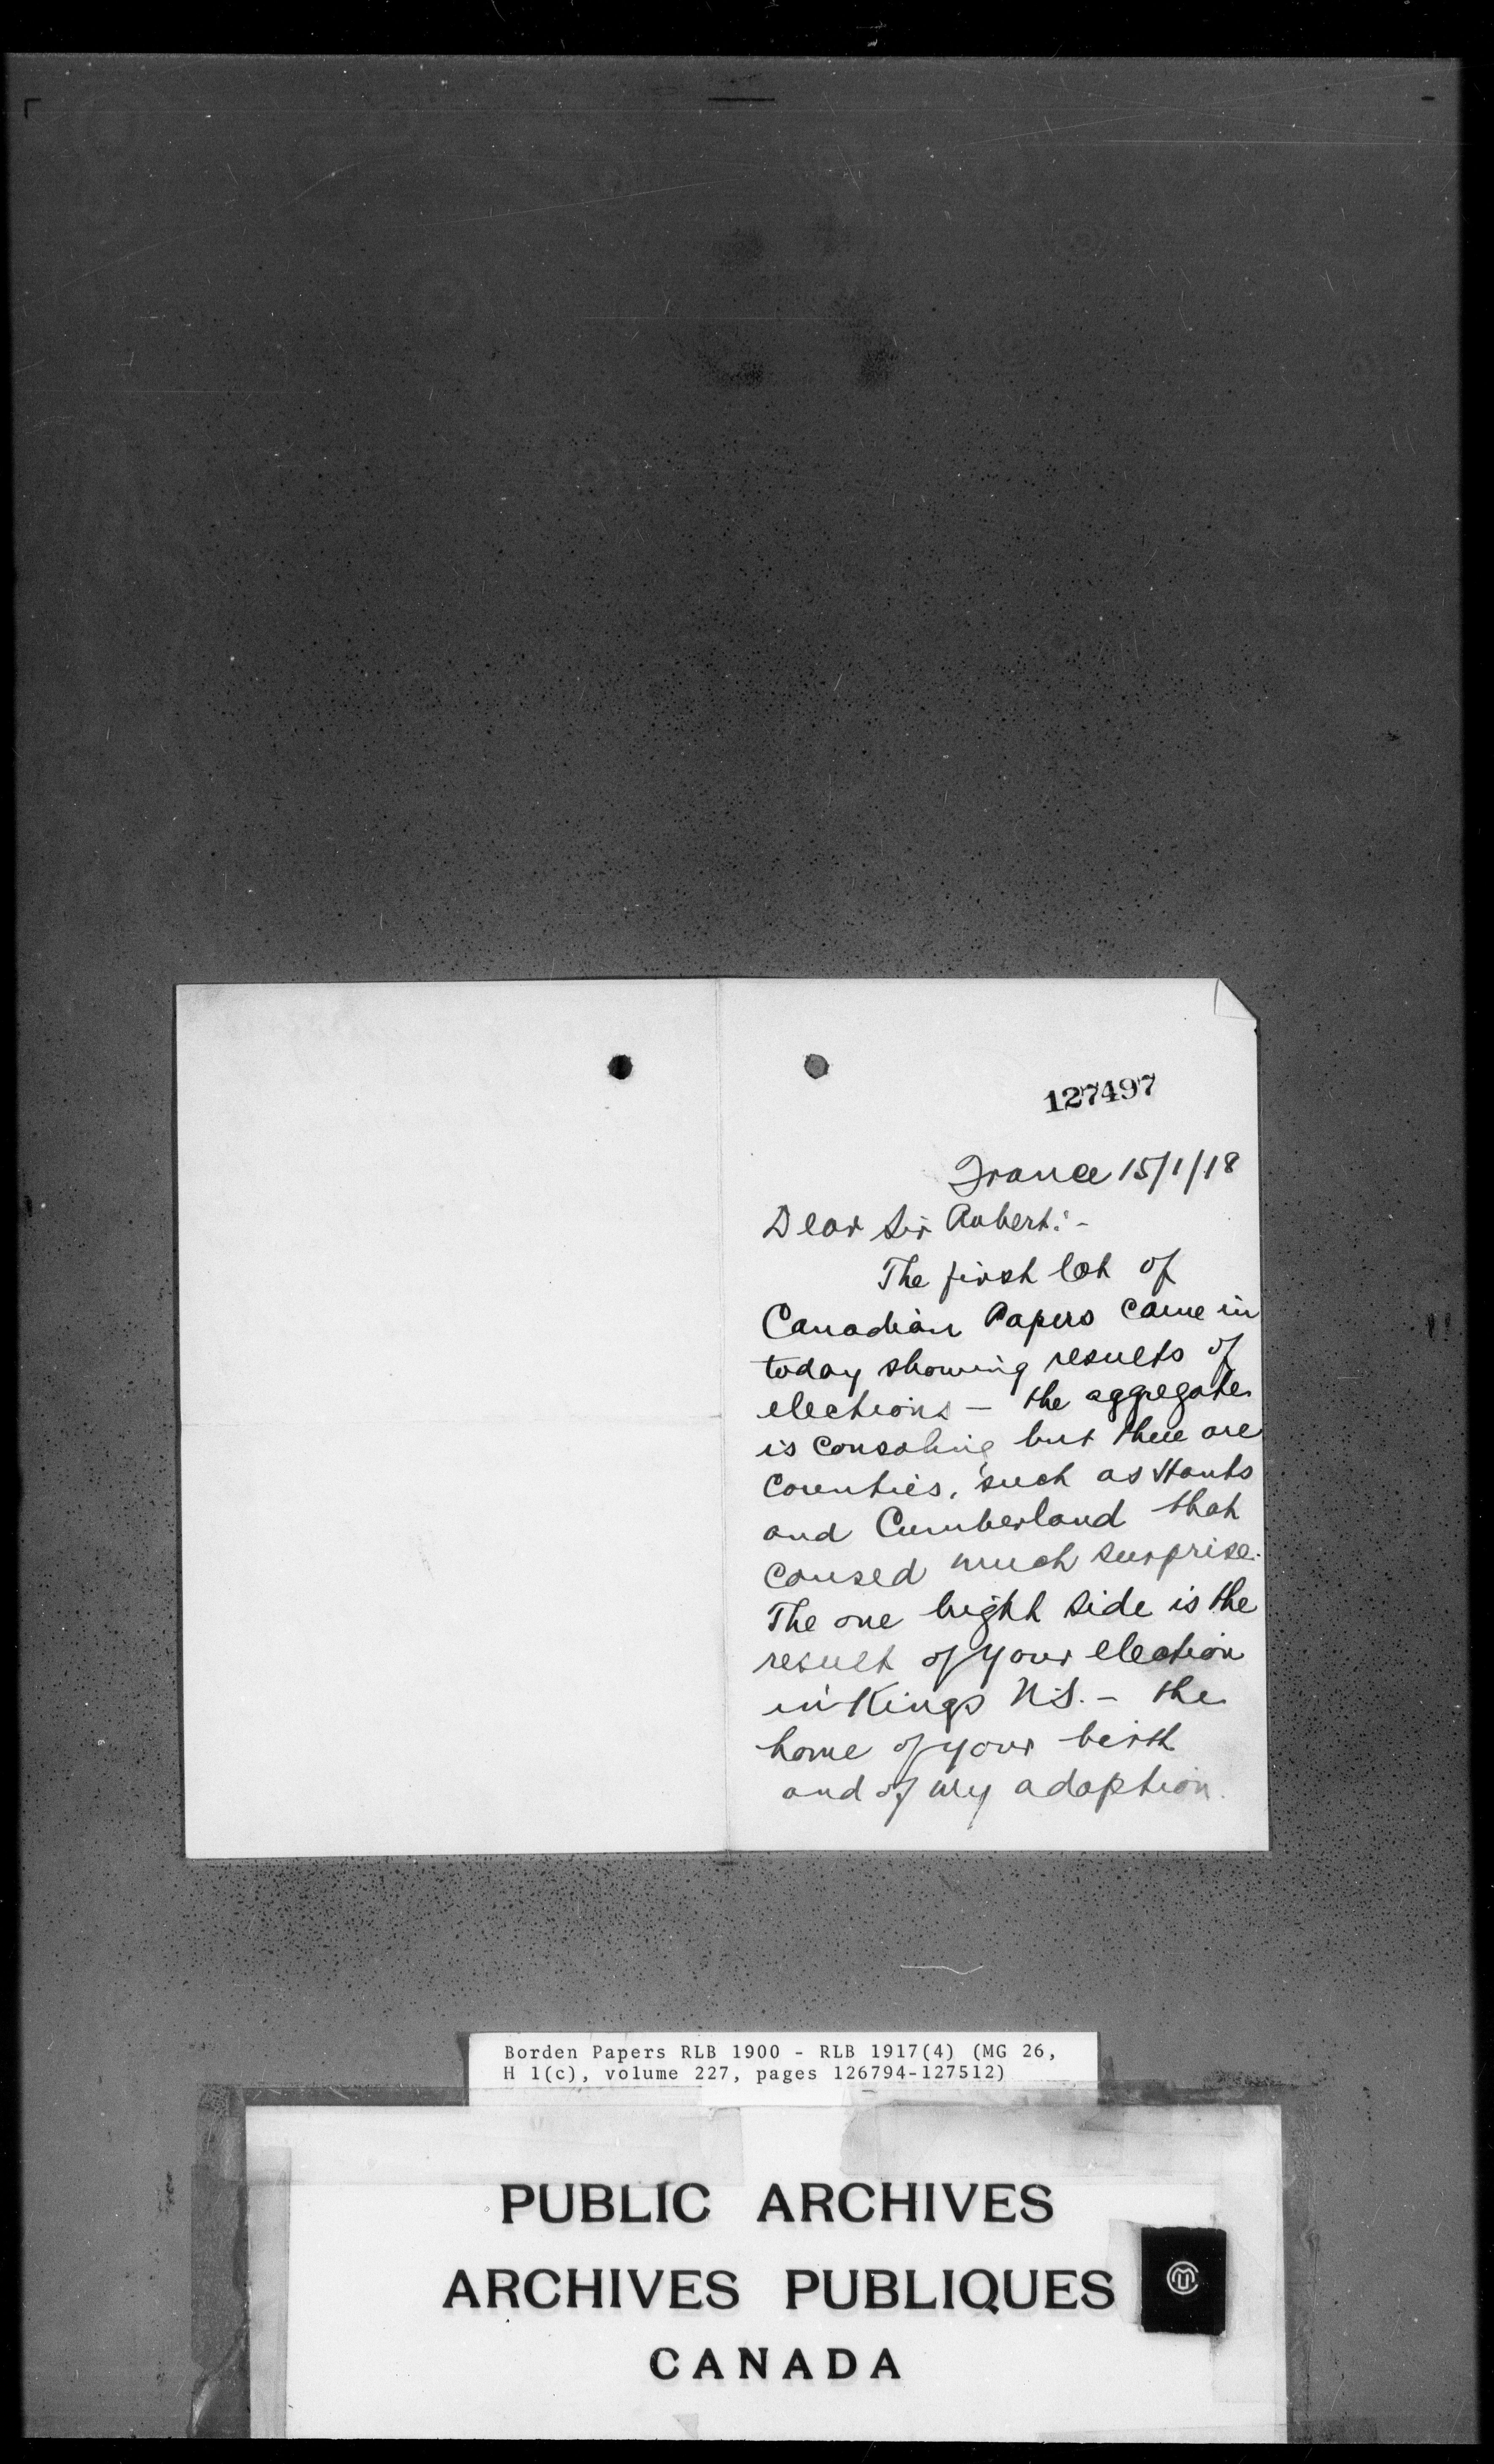 127497
France 15/1/18
Dear Sir Robert:-
The first lot of
Canadian Papers came in
today showing results of
elections - the aggregate
is consoling but there are
Counties, such as Hants
and Cumberland that
caused much surprise.
The one bright side is the
result of your election
in Kings N.S. - the
home of your birth
and of my adoption.
Borden Papers RLB 1900 - RLB 1917(4) (MG 26,
H 1(c), volume 227, pages 126794-127512)
PUBLIC ARCHIVES
ARCHIVES PUBLIQUES
CANADA